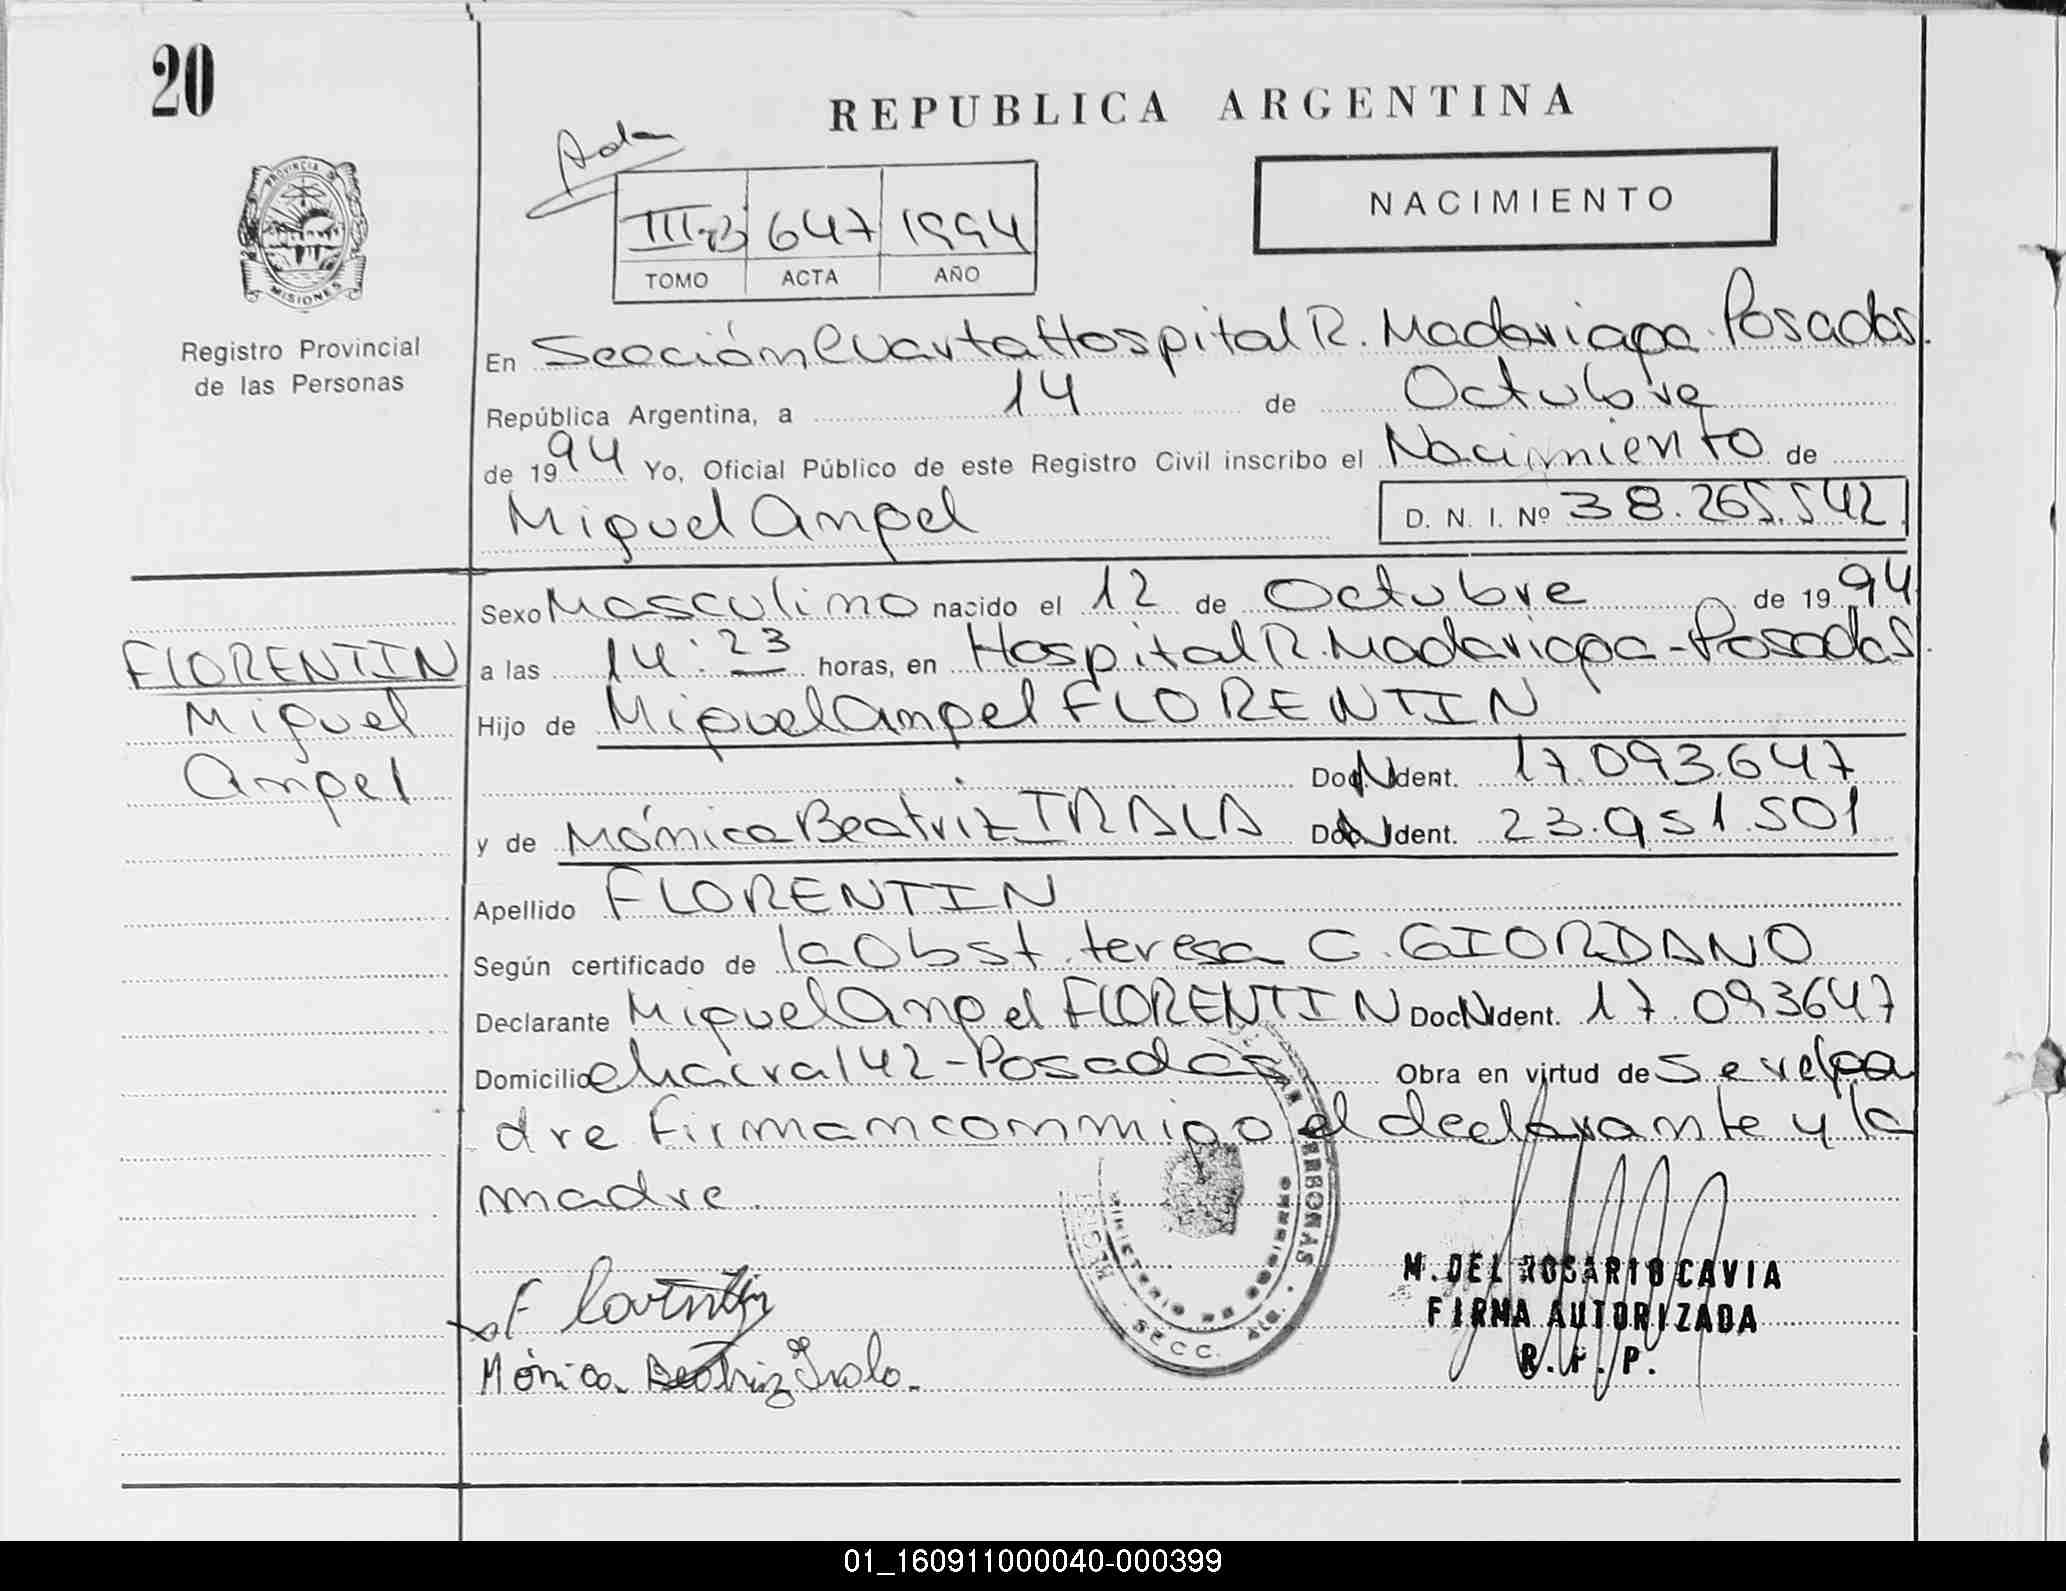 20
REPUBLICA ARGENTINA
NACIMIENTO
III-B 647 1994
TOMO ACTA AÑO
PROVINCIA DE MISIONES
Registro Provincial
de las Personas
En Sección Cuarta Hospital R. Madariaga - Posadas.
República Argentina, a 14 de Octubre
de 1994 Yo, Oficial Público de este Registro Civil inscribo el Nacimiento de
Miguel Angel D. N. I. Nº 38.265.542
FLORENTIN
Miguel
Angel
Sexo Masculino nacido el 12 de Octubre de 1994
a las 14:23 horas, en Hospital R. Madariaga - Posadas.
Hijo de Miguel Angel FLORENTIN
Doc. N Ident. 17.093.647
y de Mónica Beatriz IRALA Doc. N Ident. 23.951.501
Apellido FLORENTIN
Según certificado de la Obst. teresa C. GIORDANO
Declarante Miguel Angel FLORENTIN Doc. N Ident. 17.093647
Domicilio chacra 142 - Posadas Obra en virtud de ser el pa
dre firman conmigo el declarante y la
madre.
Mónica Beatriz Irala.
M. DEL ROSARIO CAVIA
FIRMA AUTORIZADA
R. P. P.
01_160911000040-000399